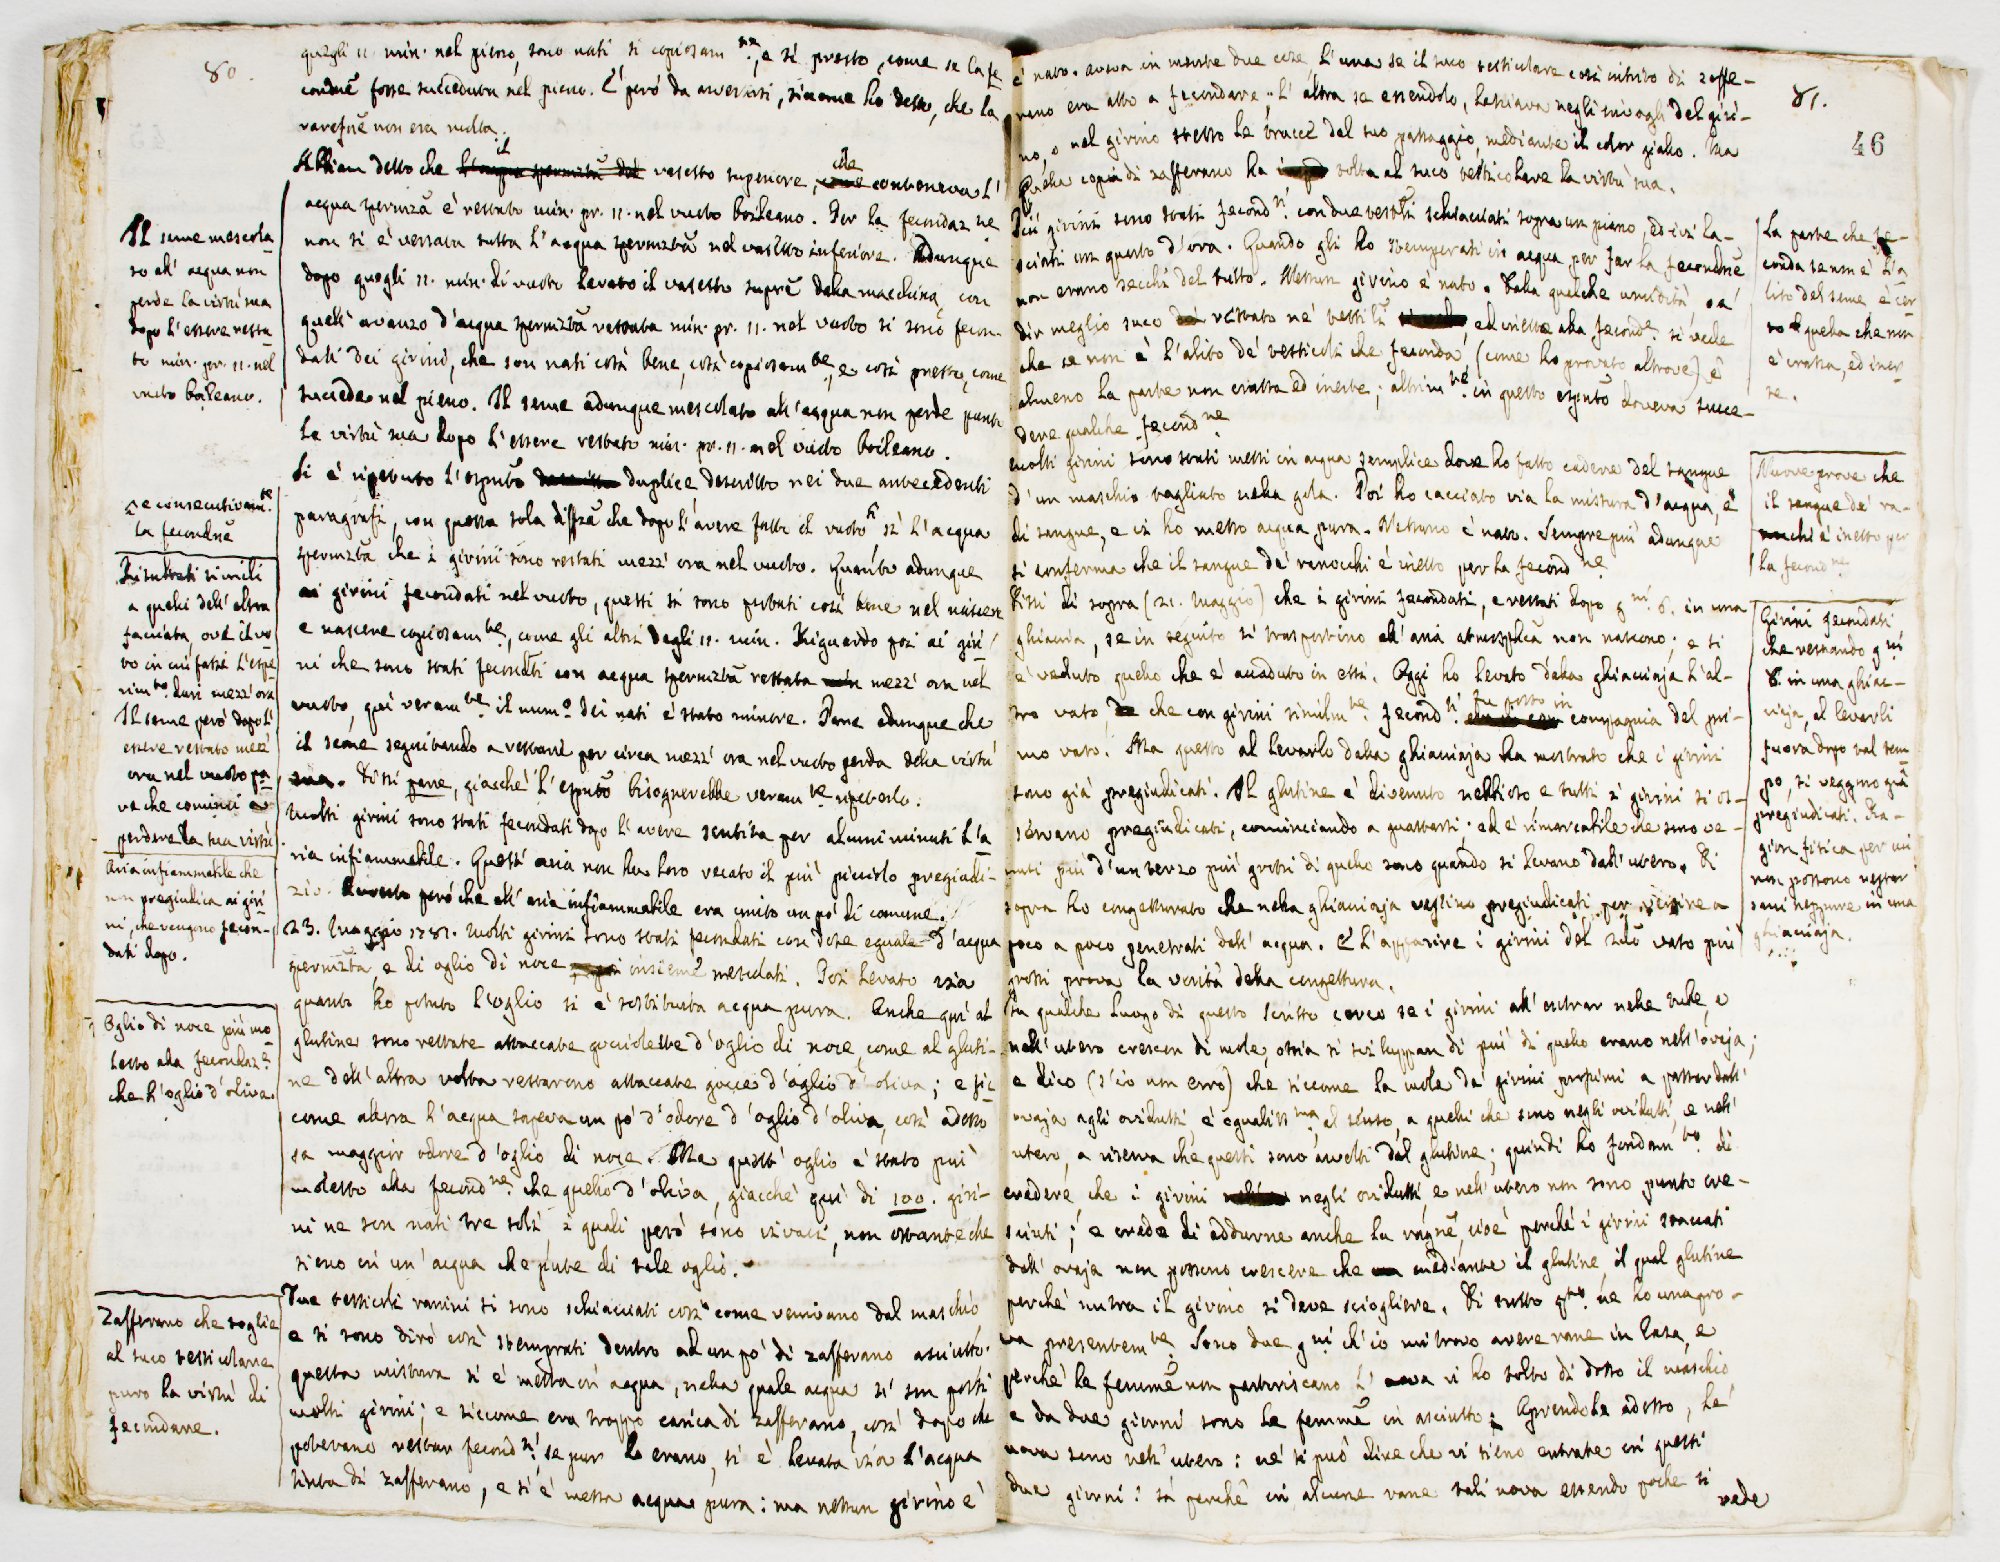 80.
quegli 11 min. nel pieno, sono nati sì copiosam.te, e sì presto, come se la fe
condne fosse succeduta nel pieno. È però da avvertirsi, siccome ho detto, che la
rarefne non era molta.
Abbiam detto che il vasetto superiore, che conteneva l'
acqua spermzta è restato min. pr. 11. nel vuoto boileano. Per la fecondaz.ne
non si è versata tutta l'acqua spermizta nel vasetto inferiore. Adunque
dopo quegli 11. min. di vuoto levato il vasetto supre dalla macchina, con
quell'avanzo d'acqua spermizta restata min. pr. 11. nel vuoto si sono fecon
dati dei girini, che son nati così bene, così copiosam.te, e così presto, come
succede nel pieno. Il seme adunque mescolato all'acqua non perde punto
la virtù sua dopo l'essere restato min. pr. 11. nel vuoto boileano.
Si è ripetuto l'espmto duplice descritto nei due antecedenti
paragrafi, con questa sola diffza che dopo l'avere fatto il vuoto sì l'acqua
spermizta che i girini sono restati mezz'ora nel vuoto. Quanto adunque
ai girini fecondati nel vuoto, questi si sono portati così bene nel
e nascere copiosam.te, come gli altri degli 11. min. Riguardo poi ai giri
ni che sono stati fecondati con acqua spermizta restata mezz'ora nel
vuoto, qui veram.te il num.o dei nati è stato minore. Pare adunque che
il seme seguitando a restare per circa mezz'ora nel vuoto perda della virtù
sua. Dissi pare, giacchè l'espmto bisognerebbe veram.te ripeterlo.
Molti girini sono stati fecondati dopo l'avere sentita per alcuni minuti l'a
ria infiammabile. Quest'aria non ha loro recato il più piccolo pregiudi-
zio. Avverto però che all'aria infiammabile era unito un po' di comune.
23. Maggio 1781. Molti girini sono stati fecondati con dose eguale d'acqua
spermizta, e di oglio di noce insieme mescolati. Poi levato via
quanto ho potuto l'oglio si è sostituita acqua pura. Anche qui al
glutine sono restate attaccate gocciolette d'oglio di noce, come al gluti-
ne dell'altra volta restarono attaccate gocce d'oglio d'oliva; e sic
come allora l'acqua sapeva un po' d'odore d'oglio d'oliva, così adesso
sa maggior odore d'oglio di noce. Ma quest'oglio è stato più
molesto alla fecond.ne che quello d'oliva, giacchè qui di 100. giri-
ni ne son nati tre soli, i quali però sono vivaci, non ostante che
sieno in un'acqua che pute di tale oglio.
Due testicoli ranini si sono schiacciati così come venivano dal maschio,
e si sono dirò così stemprati dentro ad un po' di zafferano asciutto.
questa mistura si è messa in acqua, nella quale acqua si son posti
molti girini; e siccome era troppo carica di zafferano, così dopo che
potevano restar fecond.ti se pur lo erano, si è levata via l'acqua
tinta di zafferano, e si è messa acqua pura: ma nessun girino è
Il seme mescola
to all'acqua non
perde la virtù sua
dopo l'essere resta
to min. pr. 11. nel
vuoto boileano.
e consecutivam.te
la fecondne
Risultati simili
a quelli dell'altra
facciata, ove il vo
to in cui fassi l'espe
rim.to duri mezz'ora
Il seme però dopo l'
essere restato mez
ora nel vuoto pa
re che cominci a
perdere la sua virtù
Aria infiammabile che
non pregiudica ai giri
ni, che vengono fecon-
dati dopo.
Oglio di noce più mo
lesto alla fecondaz.e
che l'oglio d'oliva.
Zafferano che toglie
al suco testicolare
puro la virtù di
fecondare.
81.
46
è nato. Aveva in mente due cose, l'una se il suco testiculare così intriso di zaffe-
rano era atto a fecondare; l'altra se essendolo, lasciava negli invogli del giri-
no, o nel girino stesso le tracce del suo passaggio, mediante il color giallo. Ma
quella copia di zafferano ha tolta al suco testicolare la virtù sua.
Più girini sono stati fecond.ti con due testcli schiacciati sopra un piano, ed ivi la-
sciati un quarto d'ora. Quando gli ho stemperati in acqua per far la fecondne
non erano secchi del tutto. Nessun girino è nato. Dalla qualche umidità, o a
dir meglio suco restato ne' testcli ed inetto alla fecond.e si vede
che se non è l'alito de' testicoli che feconda (come ho provato altrove) è
almeno la parte non crassa ed inerte; altrim.te in questo espmto doveva succe-
dere qualche fecond.ne
Molti girini sono stati messi in acqua semplice dove ho fatto cadere del sangue
d'un maschio tagliato nella gola. Poi ho cacciato via la mistura d'acqua, e
di sangue, e vi ho messo acqua pura. Nessuno è nato. Sempre più adunque
si conferma che il sangue de' ranocchi è inetto per la fecond.ne
Dissi di sopra (21. Maggio) che i girini fecondati, e restati dopo g.ni 8. in una
ghiaccia, se in seguito si trasportino all'aria atmosfca non nascono; e si
è veduto quello che è accaduto in essi. Oggi ho levato dalla ghiacciaja l'al-
tro vaso che con girini similm.te fecond.ti fu posto in compagnia del pri-
mo vaso. Ma questo al levarlo dalla ghiacciaja ha mostrato che i girini
sono già pregiudicati. Il glutine è divenuto nebbioso, e tutti i girini si os-
servano pregiudicati, cominciando a guastarsi. ed è rimarcabile che sono ve-
nuti più d'un terzo più grossi di quello sono quando si levano dall'utero. Di
sopra ho congetturato che nella ghiacciaja restino pregiudicati per venire a
poco a poco penetrati dall'acqua. E l'apparire i girini del 2do vaso più
grossi prova la verità della congettura.
In qualche luogo di questo scritto cerco se i girini all'entrar nelle tube, e
nell'utero crescon di mole, ossia si sviluppan di più di quello erano nell'ovaja;
e dico (s'io non erro) che siccome la mole de' girini prossimi a passar dall'
ovaja agli ovidutti, è egualiss.ma al senso, a quelli che sono negli ovidutti, e nell'
utero, a riserva che questi sono avvolti dal glutine; quindi ho fondam.to di
credere che i girini negli ovidutti, e nell'utero non sono punto cre-
sciuti; e credo di addurne anche la ragne, cioè perchè i girini staccati
dall'ovaja non possono crescere che mediante il glutine, il qual glutine
perchè nutra il girino si deve sciogliere. Di tutto q.to ne ho una pro-
va presentem.te Sono due g.ni ch'io mi trovo avere rane in casa, e
perchè le femme non partoriscano l'uova vi ho tolto di dosso il maschio
e da due giorni sono le femme in asciutto. Aprendole adesso, le
uova sono nell'utero: nè si può dire che vi sieno entrate in questi
due giorni: sì perchè in alcune rane tali uova essendo poche si
vede
La parte che fe-
conda se non è l'a
lito del seme è cer
to quella che non
è crassa, ed iner
te.
Nuove prove che
il sangue de' ra-
nocchi è inetto per
la fecond.ne
Girini fecondati
che restando g.ni
8. in una ghiac-
ciaja, al levarli
fuora dopo tal tem
po, si veggono già
pregiudicati. Ra-
gion fisica per cui
non possono restar
sani neppure in una
ghiacciaja.